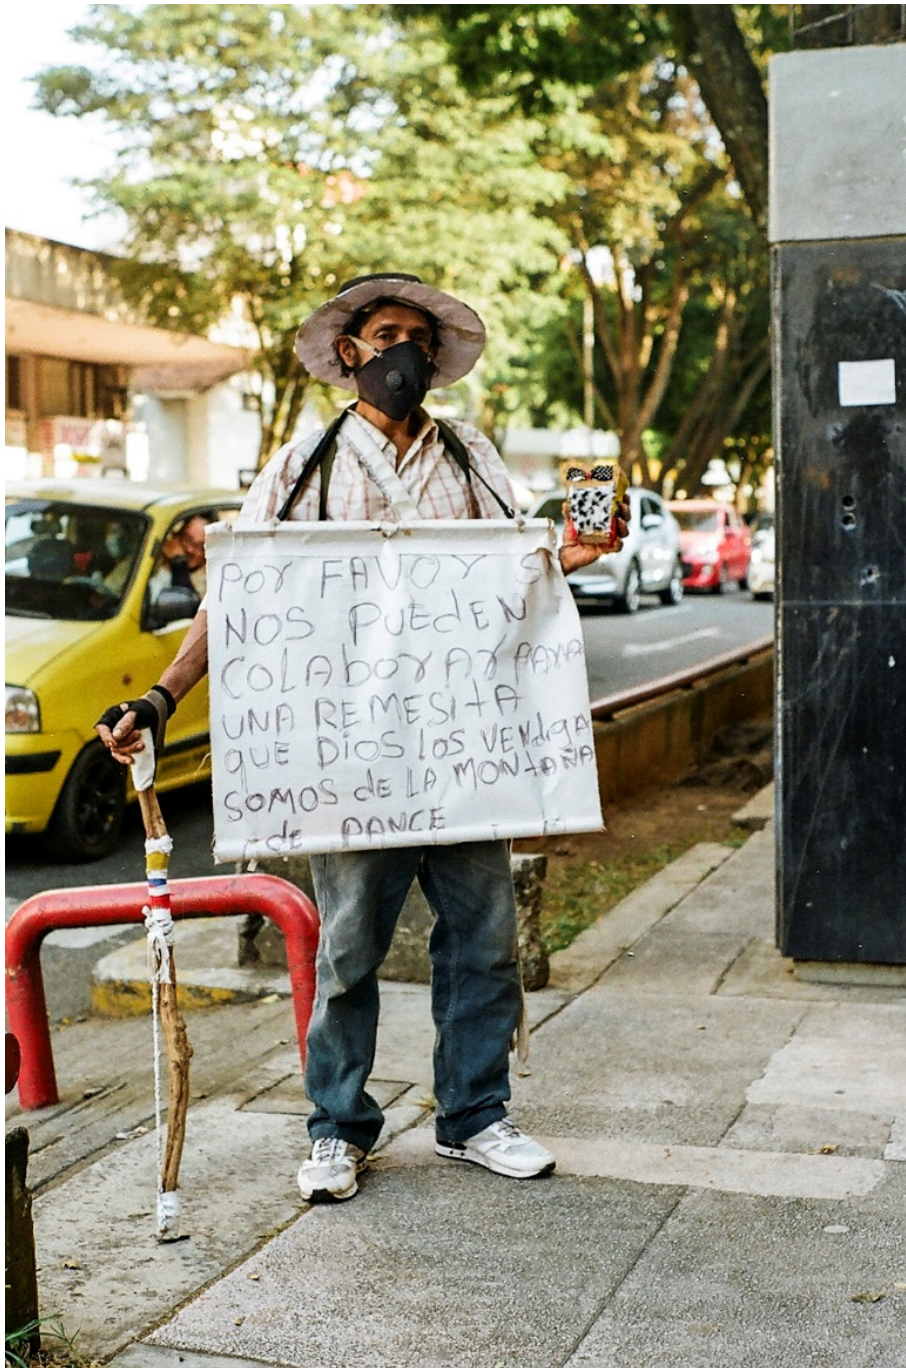 POR FAVOR S
NOS PUEdEN
COLAboRAR PARA
UNA REMESItA
QUE DIOS LOS VENdIGA
SOMOS dE LA MONtAÑA
dE PANCE